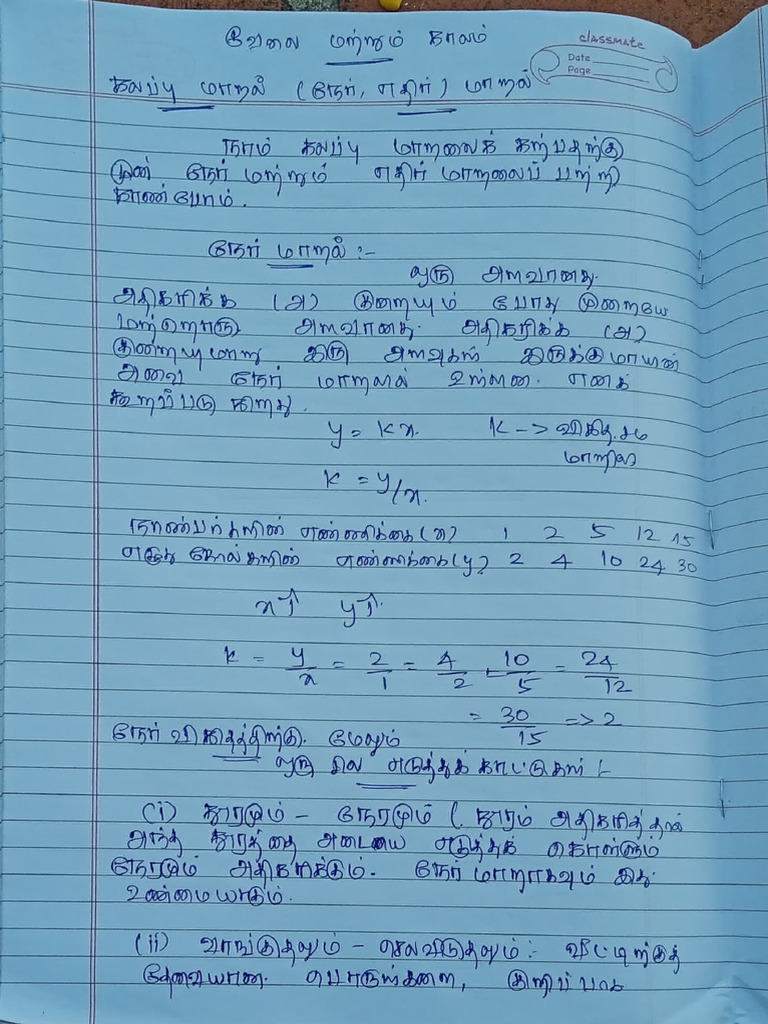 வேலை மற்றும் காலம்
classmate
Date
Page
கலப்பு மாறல் (நேர், எதிர்) மாறல்
நாம் கலப்பு மாறலைக் கற்பதற்கு
முன் நேர் மற்றும் எதிர் மாறலைப் பற்றி
காண்போம்.
நேர் மாறல் :-
ஒரு அளவானது
அதிகரிக்க (அ) குறையும் போது முறையே
மற்றொரு அளவானது அதிகரிக்க (அ)
குறையுமாறு இரு அளவுகள் இருக்குமாயின்
அவை நேர் மாறலில் உள்ளன. எனக்
கூறப்படுகிறது.
y = kx. k -> விகித சம
மாறிலி
k = y/x.
நாண்பர்களின் எண்ணிக்கை (x) 1 2 5 12 15
எழுதுகோல்களின் எண்ணிக்கை (y) 2 4 10 24 30
x↑ y↑
k = y/x = 2/1 = 4/2 = 10/5 = 24/12
= 30/15 => 2
நேர் விகிதத்திற்கு மேலும்
ஒரு சில எடுத்துக்காட்டுகள் :-
(i) தூரமும் – நேரமும் ( தூரம் அதிகரித்தால்
அந்த தூரத்தை அடைய எடுத்துக் கொள்ளும்
நேரமும் அதிகரிக்கும். நேர் மாறாகவும் இது
உண்மையாகும்.
(ii) வாங்குதலும் – செலவிடுதலும் :- வீட்டிற்குத்
தேவையான பொருள்களை, குறிப்பாக